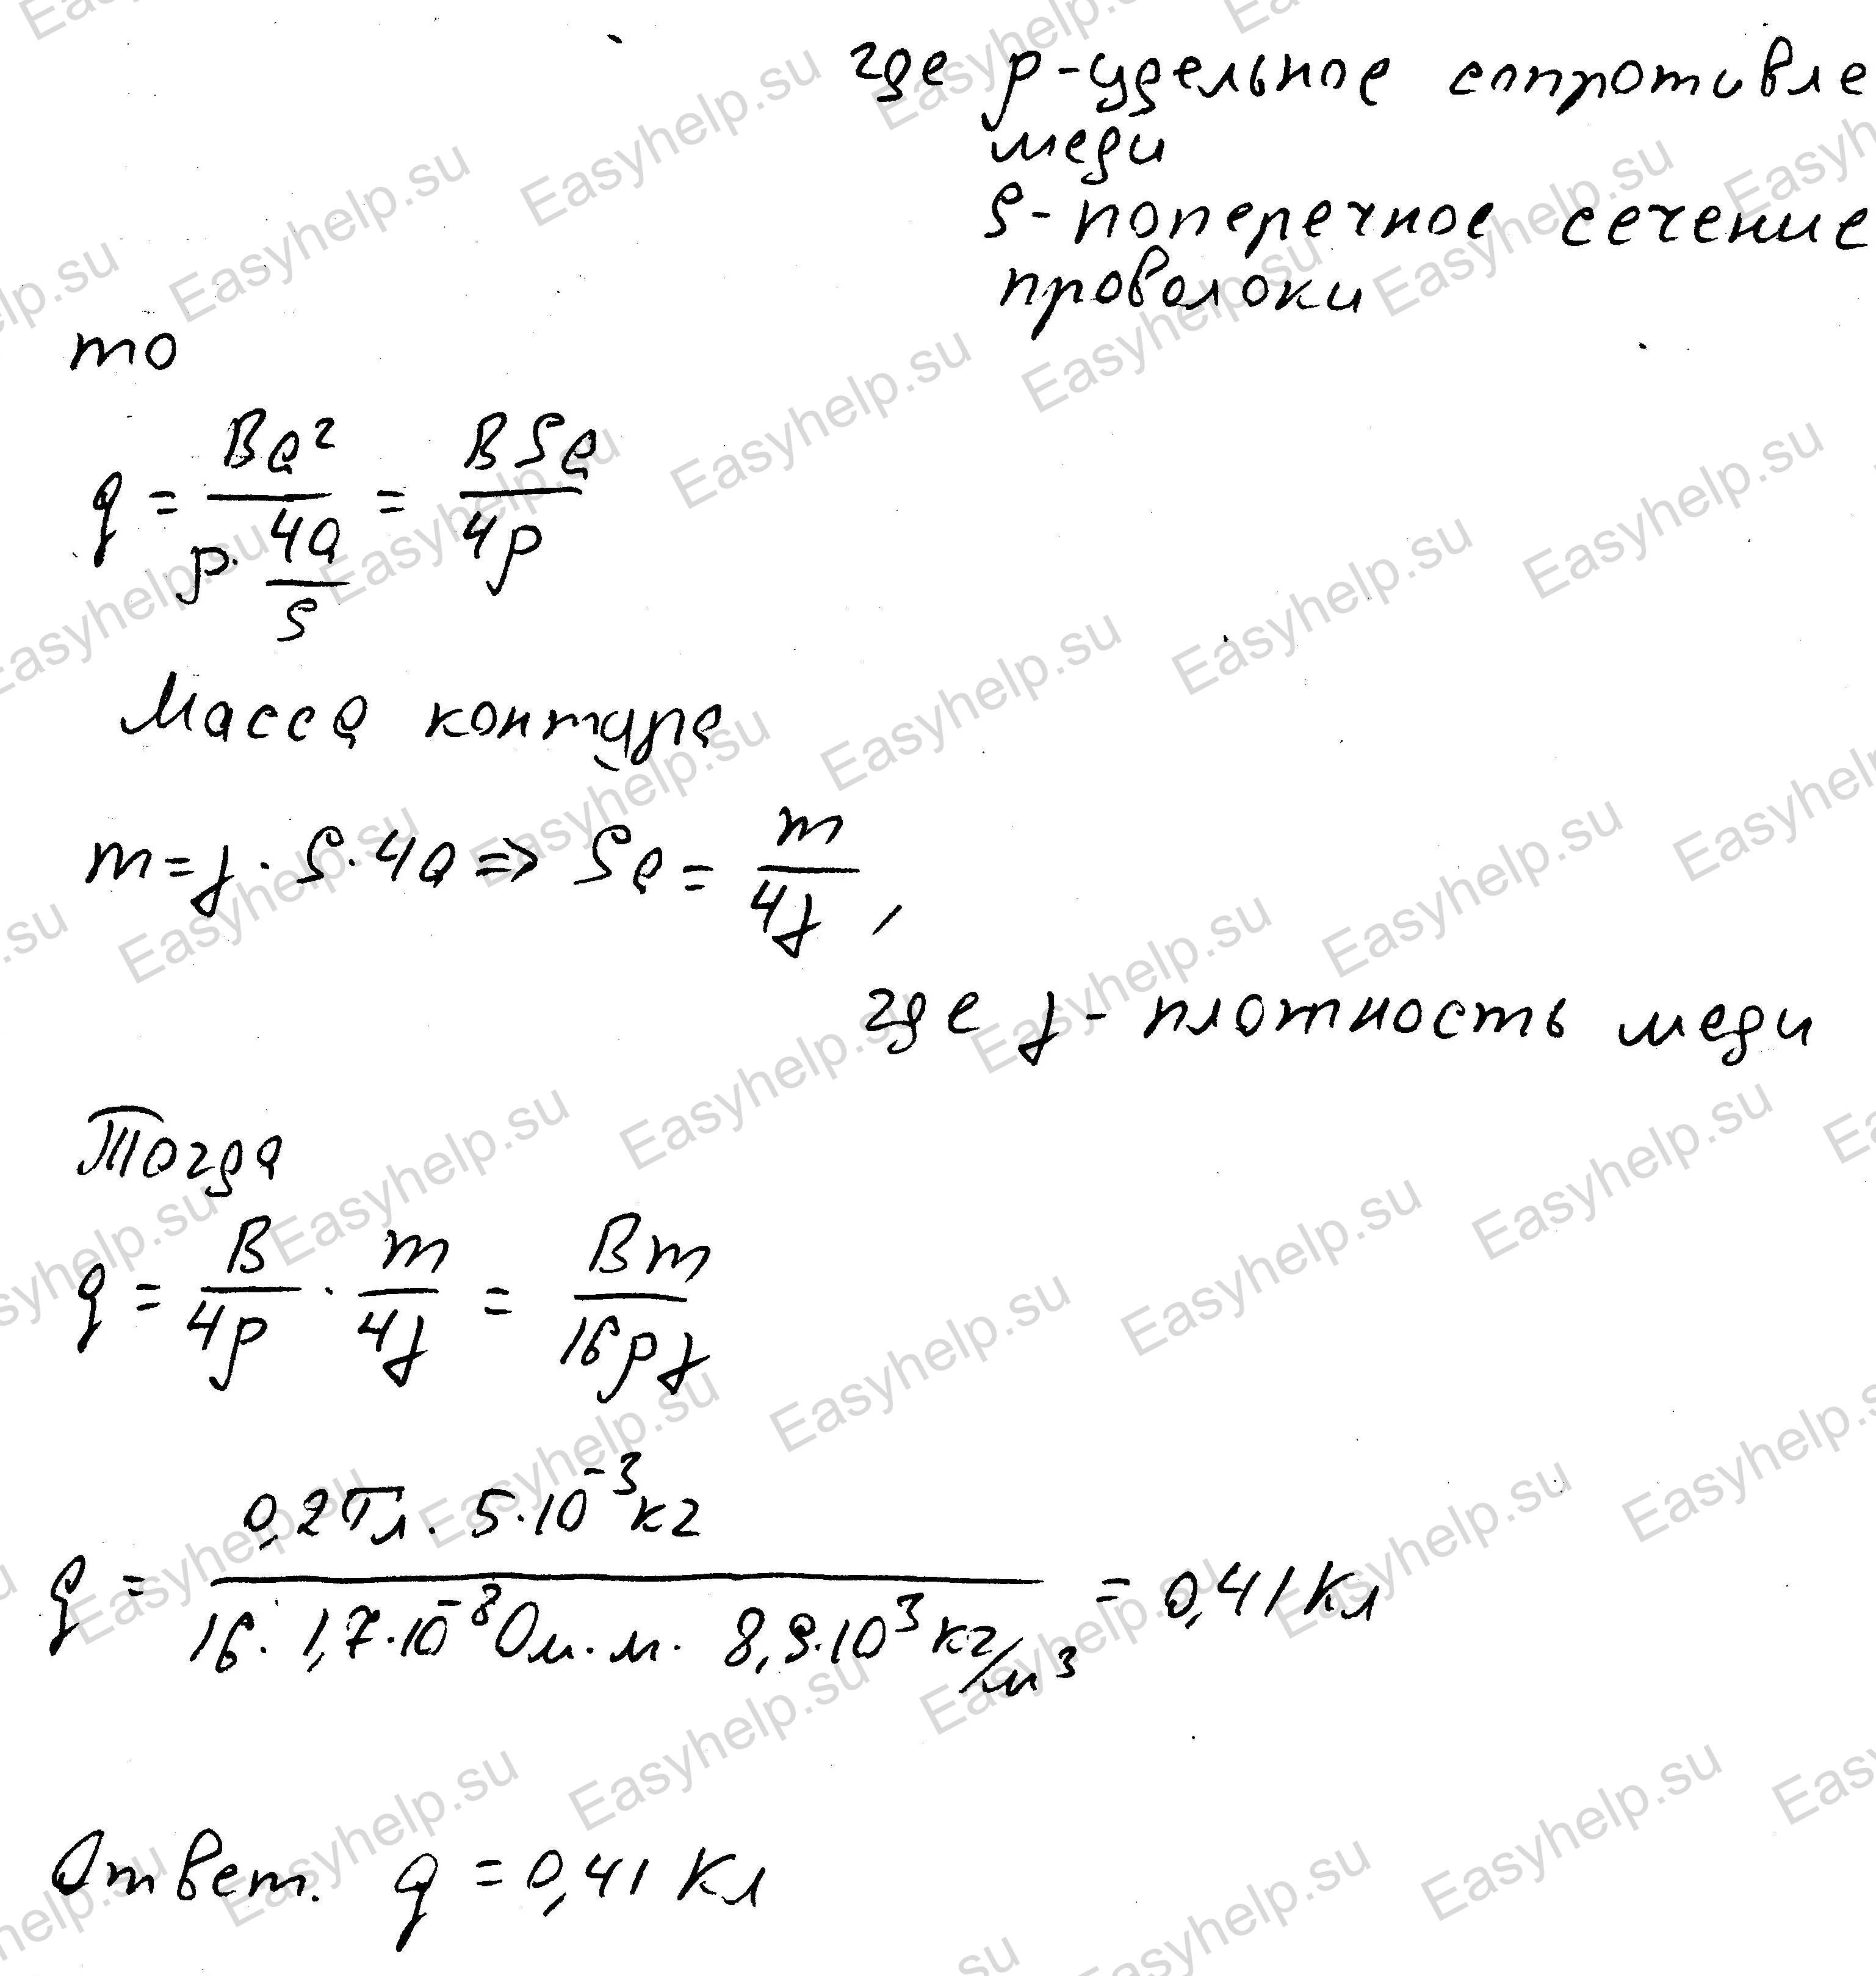 где ρ-удельное сопротивле
меди
S-поперечное сечение
проволоки
то
q = Ba² / (ρ · 4a/S) = BSa / 4ρ
Масса контура
m = γ · S · 4a ⇒ Sa = m / 4γ ,
где γ - плотность меди
Тогда
q = B / 4ρ · m / 4γ = Bm / 16ργ
q = 0,2Тл · 5·10⁻³кг / 16 · 1,7·10⁻⁸Ом·м · 8,9·10³кг/м³ = 0,41Кл
Ответ. q = 0,41 Кл
Easyhelp.su